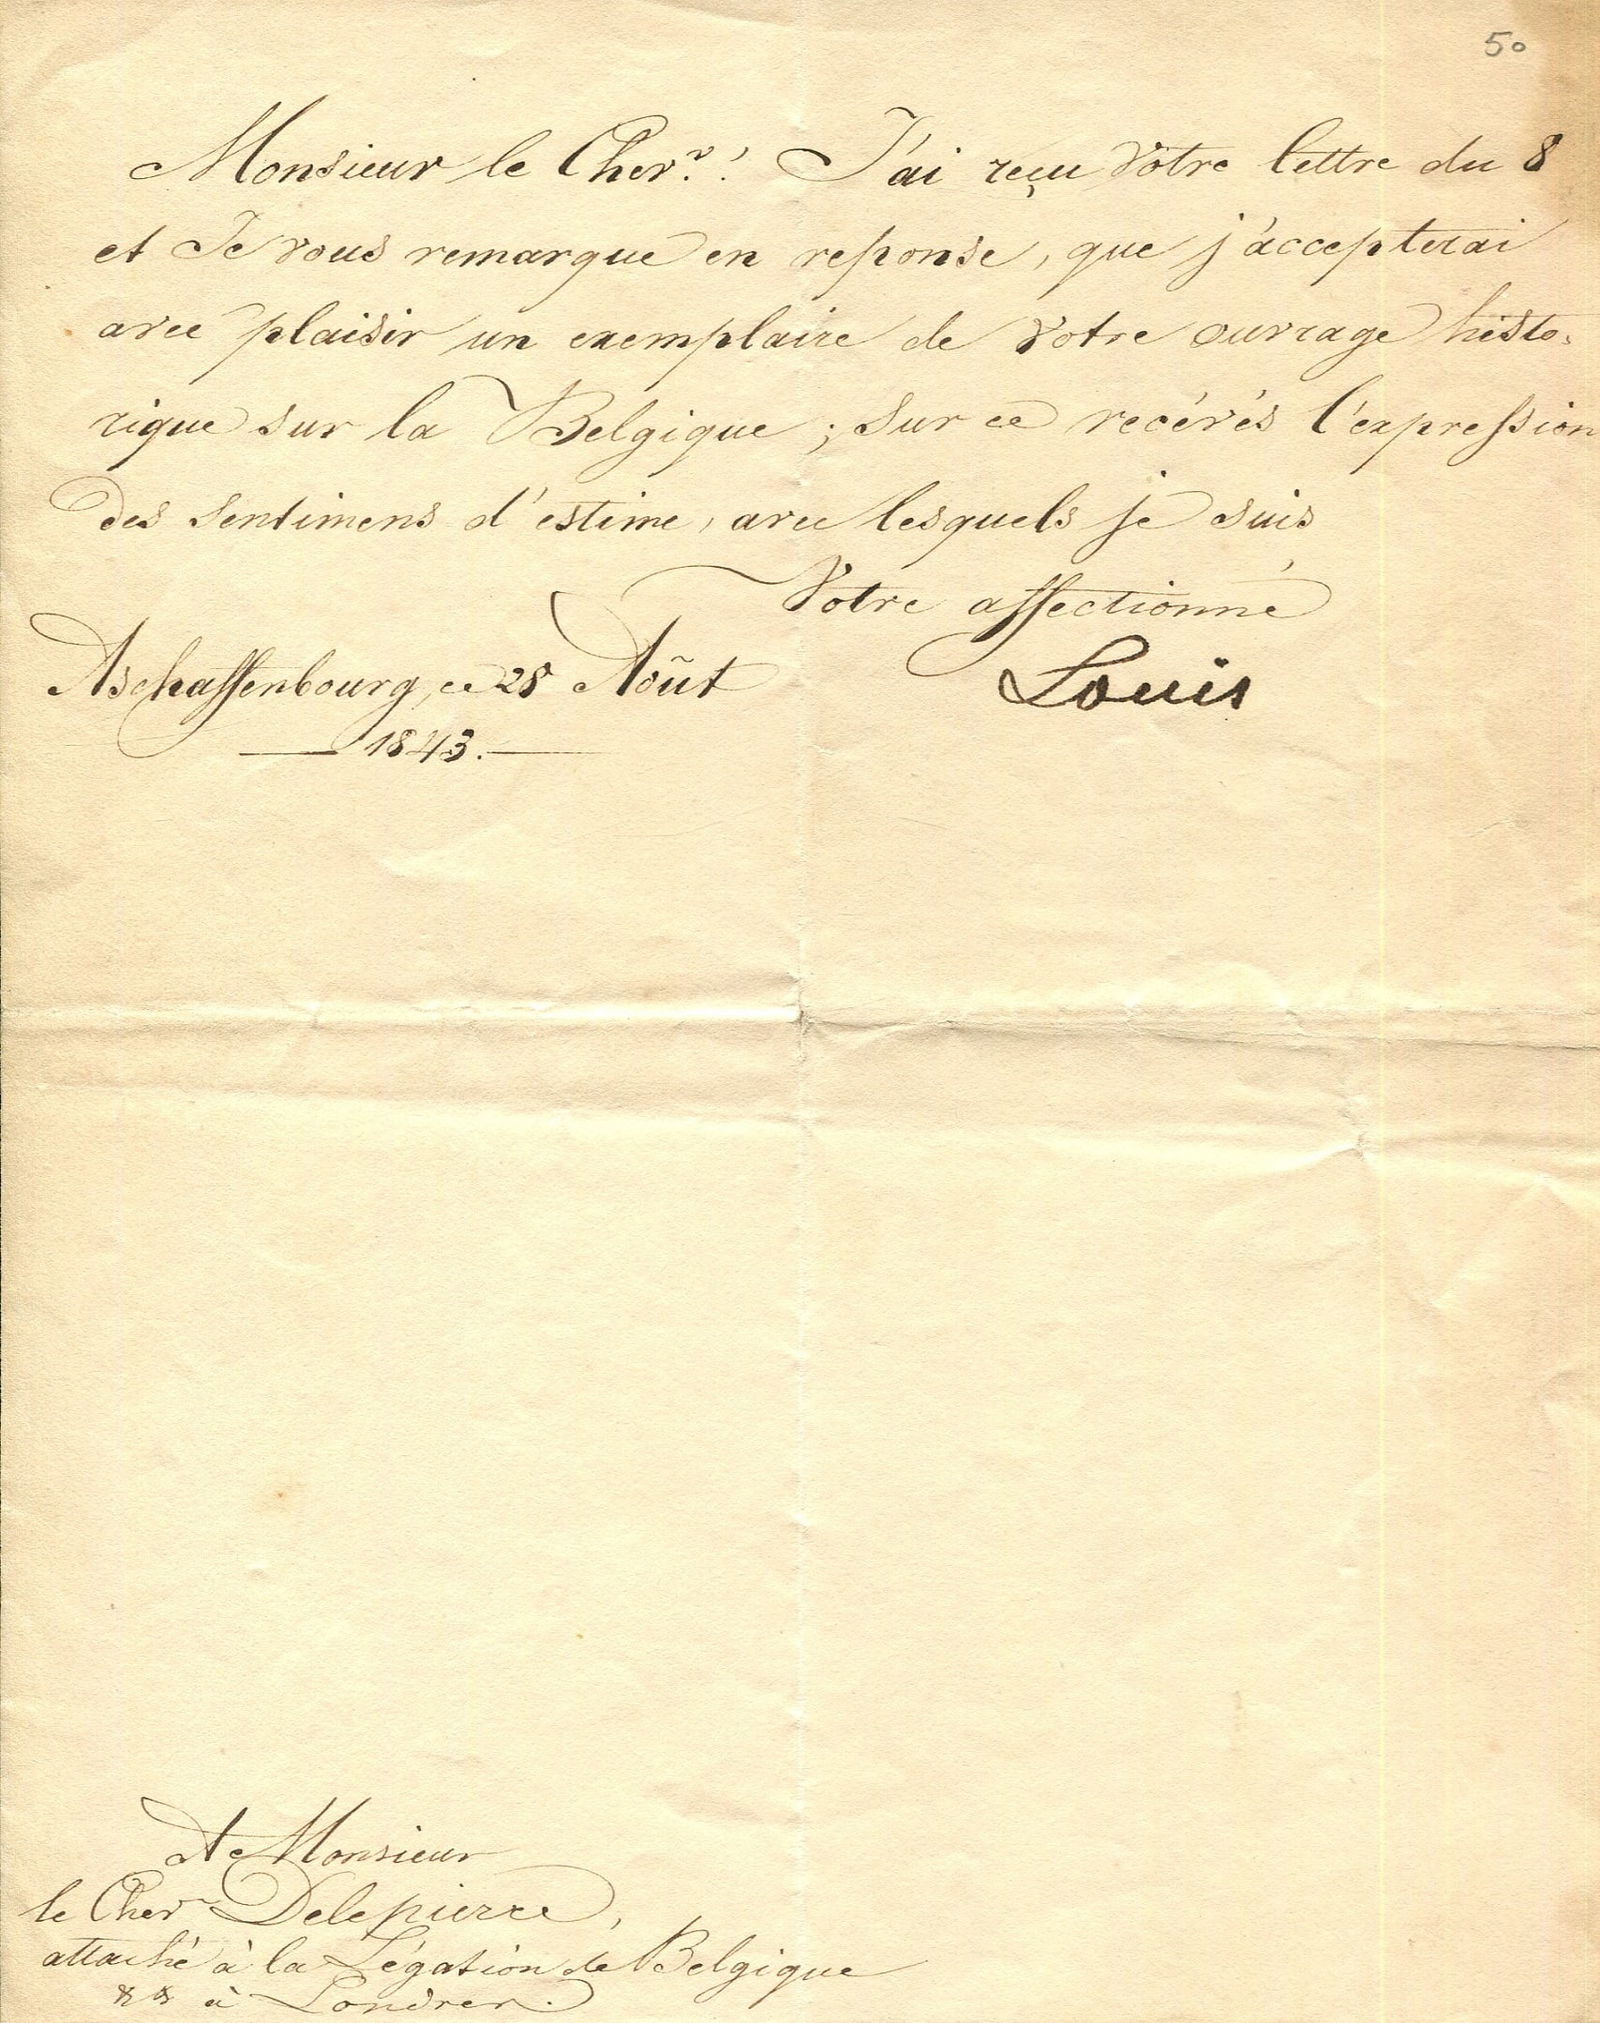 50
Monsieur le Chevr.! J'ai reçu Votre lettre du 8
et Je vous remarque en reponse, que j'accepterai
avec plaisir un exemplaire de Votre ouvrage histo-
rique sur la Belgique; sur ce recévés l'expression
des sentimens d'estime, avec lesquels je suis
Votre affectionné
Aschaffenbourg, ce 28 Août
Louis
1843.
A Monsieur
le Chevr Delepierre,
attaché à la Légation de Belgique
à Londres.